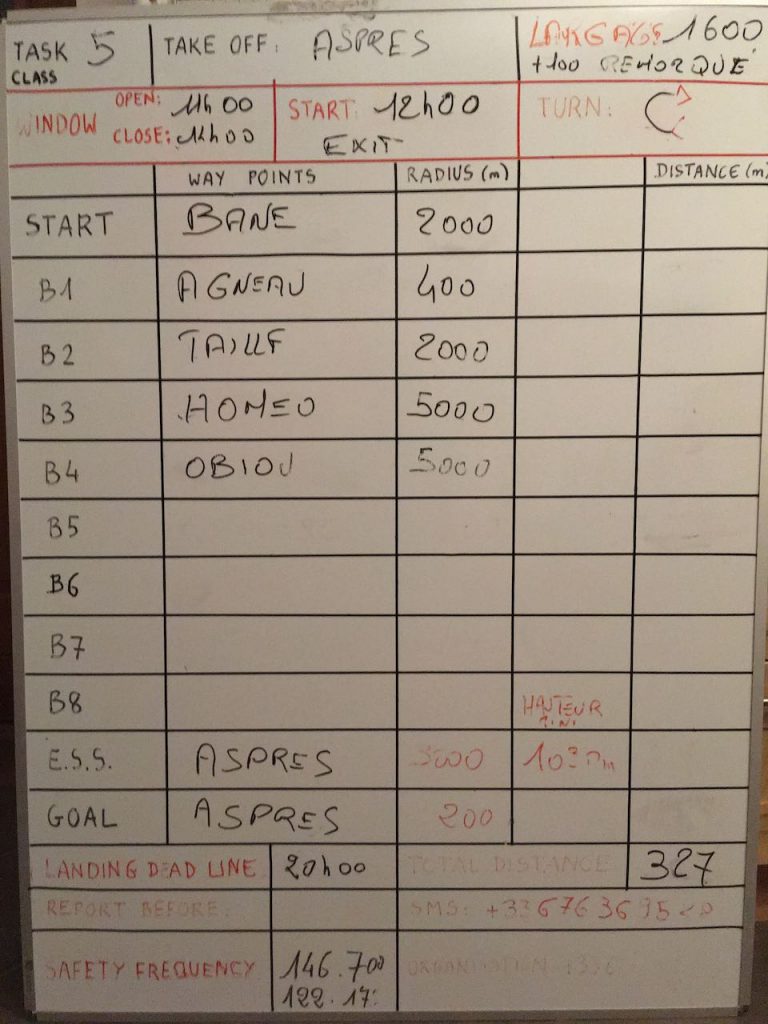 TASK 5 TAKE OFF: ASPRES 1600
CLASS +100 REMORQUÉ
WINDOW OPEN: 11h00 START: 12h00 TURN:
CLOSE: EXIT
WAY POINTS RADIUS (m) DISTANCE (m)
START BANE 2000
B1 AGNEAU 400
B2 TAILLF 2000
B3 HOMEO 5000
B4 OBIOU 5000
B5
B6
B7
B8 HAUTEUR MINI
E.S.S. ASPRES
GOAL ASPRES 200
LANDING DEAD LINE 20h00 TOTAL DISTANCE 327
REPORT BEFORE: SMS:
SAFETY FREQUENCY 146.700 ORGANISATION